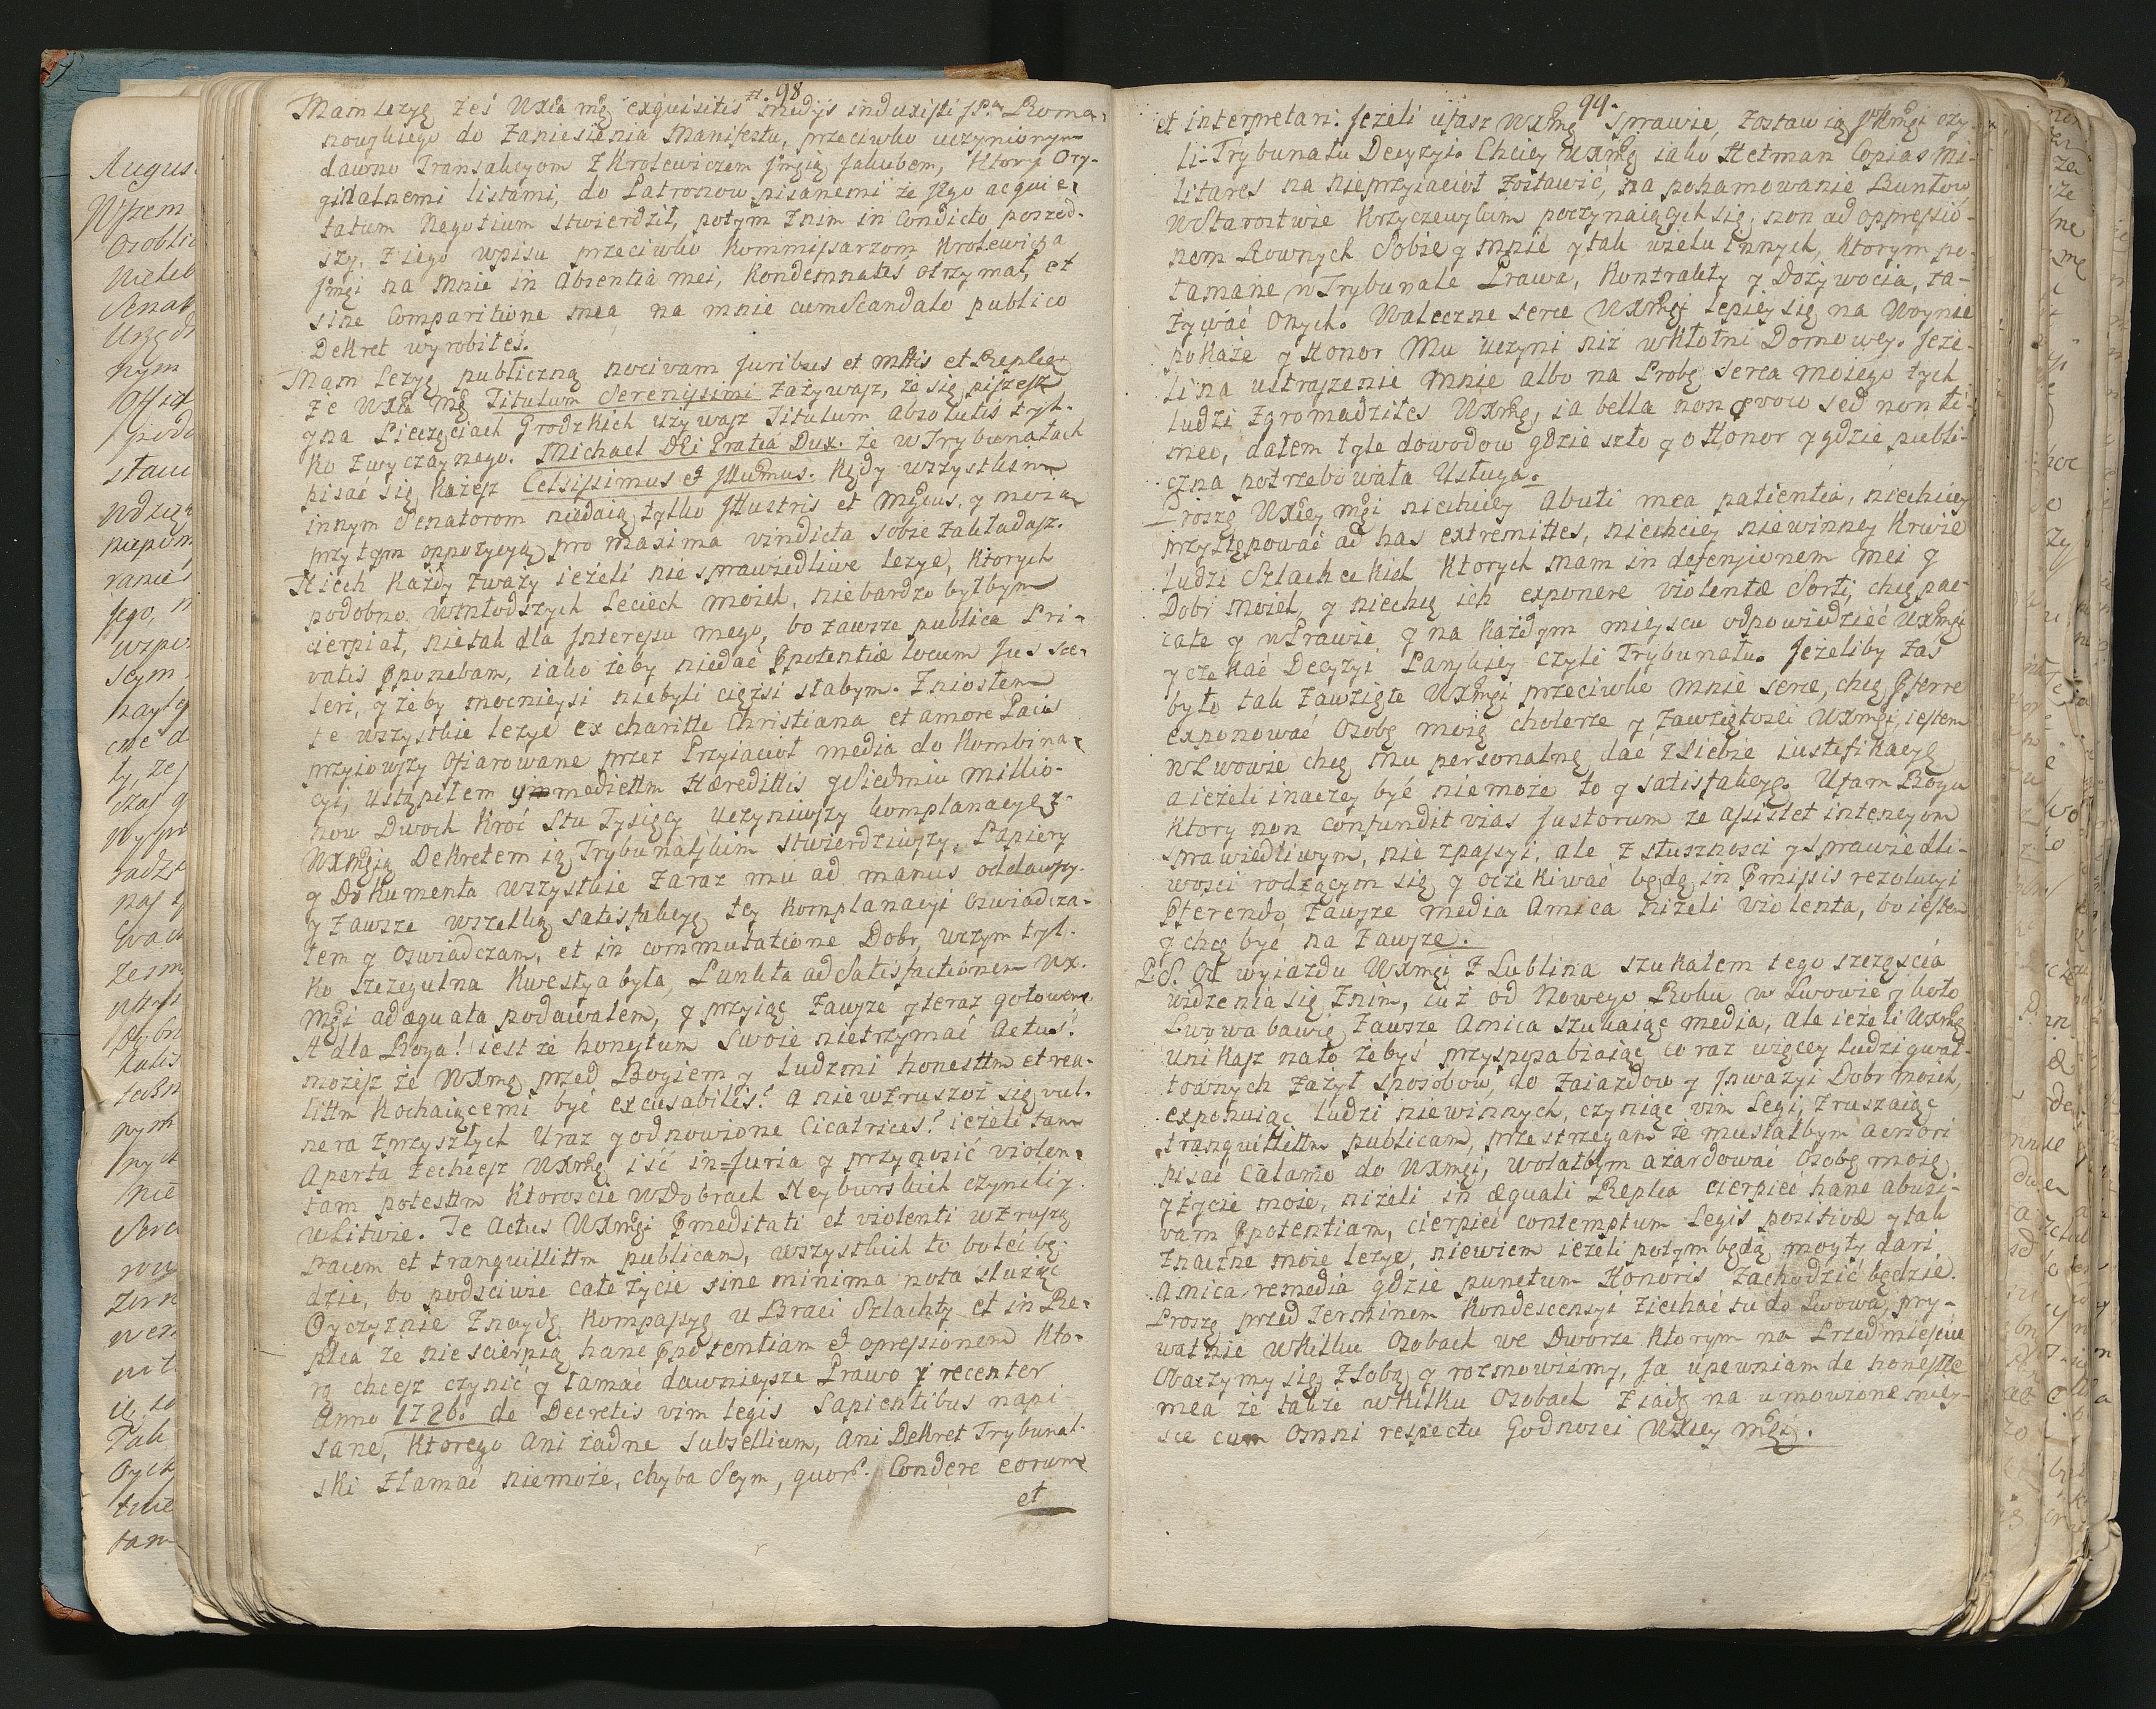 98
Mam lezyę żeś UXća mć exquisitis medijs induxisti JP. Roma-
nowskiego do zaniesienia Manifestu, przeciwko uczynionym
dawno Transakcyom z Krolewiczem Jmcią Jakubem, ktory Ory-
ginalnemi listami, do Patronow pisanemi że Jego acquie-
tatum Negotium stwierdził, potym z nim in Condicto poszed-
szy, z iego wpisu przeciwko Kommissarzom Krolewica
Jmci na mnie in Absentia mei, Kondemnates otrzymał, et
sine Comparitione mea na mnie cum Scandalo publico
Dekret wyrobiłeś.
Mam lezyę publiczną nocivam Juribus et mttis et Replcę
że UXća Mć Titulum Serenissimi zażywasz, że się piszesz
y na Pieczęciach Grodzkich używasz Titulum absolutis tyl-
ko zwyczaynego. Michael Dei Gratia Dux. że w Trybunałach
pisać się każesz Celsissimus et Illumus. kędy wszystkim
innym Senatorom niedaią tylko Illustris et Mgcus, y moią
przytym oppozycyą pro maxima vindicta sobie zakładasz.
Niech każdy zważy ieżeli nie sprawiedliwe lezye, ktorych
podobno wmłodszych leciech moich, niebardzo byłbym
cierpiał, nietak dla Interessu mego, bo zawsze publica Pri-
vatis pponebam, iako żeby niedać ppotentiæ locum Jus sce-
leri, y żeby mocnieysi niebyli ciężsi słabym. Zniosłem
te wszystkie lezye ex charitte Christiana et amore Pacis
przyiowszy ofiarowane przez Przyiacioł media do Kombina-
cyi, ustąpiłem immediettm Hæredittis z Siedmiu millio-
now Dwoch kroć Stu Tysięcy uczyniwszy komplanacyę z
WXMcią Dekretem ią Trybunalskim stwierdziwszy, Papiery
y Dokumenta wszystkie zaraz mu ad manus oddawszy.
y zawsze wszelką satisfakcyę tey Komplanacyi oswiadcza-
łem y oswiadczam, et in commutatione Dobr, wczym tyl-
ko szczegulna kwestya była, Punkta ad Satisfactionem WX.
Mci adæquata podawałem, y przyiąć zawsze y teraz gotowem.
A dla Boga! iest że honestum swoie nietrzymać Actus?
możesz że WXMć przed Bogiem y ludzmi honesttm et rea-
littm Kochaiącemi być excusabilis? a niewzruszoż się vul-
nera zprzyszłych Uraz y odnowione Cicatrices? ieżeli tam
Aperta zechcesz WXMć iść in-Juria y przynosić violen-
tam potesttm ktoroście w Dobrach Neyburskich czynili y
w Litwie. Te Actus WXMci pmeditati et violenti wzruszą
Pacem et tranquillittm publicam, wszystkich to boleć bę-
dzie, bo podściwie całe życie sine minima nota służąc
Oyczyznie Znaydę kompassyę u Braci Szlachty et in Re-
plca że nie scierpią hanc ppotentiam et opressionem kto-
rą chcesz czynić y łamać dawnieysze Prawo y recenter
Anno 1726. de Decretis vim legis Sapientibus napi
sane, ktorego ani żadne Subsellium, ani Dekret Trybunal-
ski złamać niemoże, chyba Seym, quor. Condere eorum
et
99.
et interpretari. Jeżeli ufasz WXMć Sprawie, zostaw ią JKMci czy-
li-Trybunału Decyzyi. Chciey WXMć iako Hetman Copias Mi-
litares na nieprzyiacioł zostawić, na pohamowanie Buntow
w Starostwie Krzyczewskim poczynaiących się, non ad oppressio-
nem Rownych Sobie y mnie y tak wielu innych, ktorym po-
łamane w Trybunale Prawa, Kontrakty y Dożywocia, za-
żywać Onych. Waleczne serce WXMci lepiey się na Woynie
pokaże y Honor Mu uczyni niż w kłotni Domowey. Jeże-
li na ustraszenie mnie albo na Probę serca moiego tych
ludzi zgromadziłeś WXMć, ia bella non quero sed non ti-
meo, dałem tyle dowodow gdzie szło y o Honor y gdzie publi-
czna potrzebowała Usługa.
Proszę WXcey mci niechciey abuti mea patientia, niechciey
przystępować ad has extremittes, niechciey niewinney krwie
ludzi Szlacheckich ktorych mam in defensionem mei y
Dobr moich, y niechcę ich exponere violentæ Sorti, chcę pac-
cate y w Prawie y na każdym mieyscu odpowiedzieć WXMci
y czekać Decyzyi Pańskiey czyli Trybunału. Jeżeliby zas
było tak zawzięte WXMci przeciwko mnie serce, chcę pferre
exponować Osobę moię cholerze y zawziętosci WXMci, iestem
w Lwowie chcę Mu personalnę dać z siebie iustefikacyę
a ieżeli inaczey być niemoże to y satisfakcyę. Ufam Bogu
ktory non confundit vias Justorum że assistet intencyom
sprawiedliwym, nie zpassyi, ale z słusznosci y sprawiedli-
wosci rodzącym się y oczekiwać będę in pmissis rezolucyi
pferendo zawsze media Amica niżeli violenta, bo iestem
y chcę być na zawsze.
P:S. Od wyiazdu WXMci z Lublina szukałem tego szczęścia
widzenia się znim, iuż od Nowego Roku w Lwowie y koło
Lwowa bawię, zawsze Amica szukaiąc media, ale ieżeli WXMć
unikasz nato żebyś przysposabiaiąc co raz więcey ludzi gwał-
townych zażył sposobow, do zaiazdow y Inwazyi Dobr moich,
exponuiąc ludzi niewinnych, czyniąc vim Legi, zruszaiąc
tranquillittm publicam, przestrzegam że musiałbym acriori
pisać Calamo do WXMci, wolałbym azardować Osobę moię
y życie moie, niżeli in æquali Replca cierpieć hanc abusi-
vam ppotentiam, cierpieć contemptum Legis positivæ y tak
znaczne moie lezye, niewiem ieżeli potym będą mogły dari
Amica remedia gdzie punctum Honoris zachodzić będzie.
Proszę przed Terminem Kondescensyi ziechać tu do Lwowa, pry-
watnie w kilku Osobach we Dworze ktorym na Przedmieyscie
Obaczymy się z sobą y rozmowiemy, Ja upewniam de honeste
mea że także w kilku Osobach ziadę na umowione miey-
sce cum Omni respectu Godnosci WXcey mci.